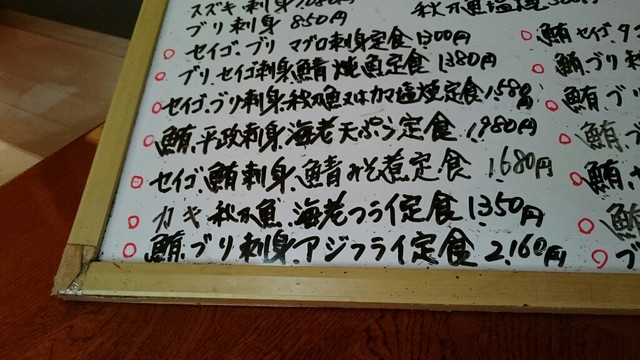 スズキ刺身 1,080円
ブリ刺身 850円
セイゴ.ブリ マグロ刺身定食 1300円
ブリ.セイゴ刺身.鯖焼魚定食 1,380円
セイゴ.ブリ刺身.秋刀魚又はカマ塩焼定食 1,580円
鮪.平政刺身.海老天ぷら定食 1,980円
セイゴ.鮪刺身.鯖みそ煮定食 1,680円
カキ.秋刀魚.海老フライ定食 1,350円
鮪.ブリ刺身.アジフライ定食 2,160円
秋刀魚塩焼
鮪 セイゴ.タ
鮪.ブリ
鮪.ブリ
鮪.ブ
鮪.
鮪
ブ